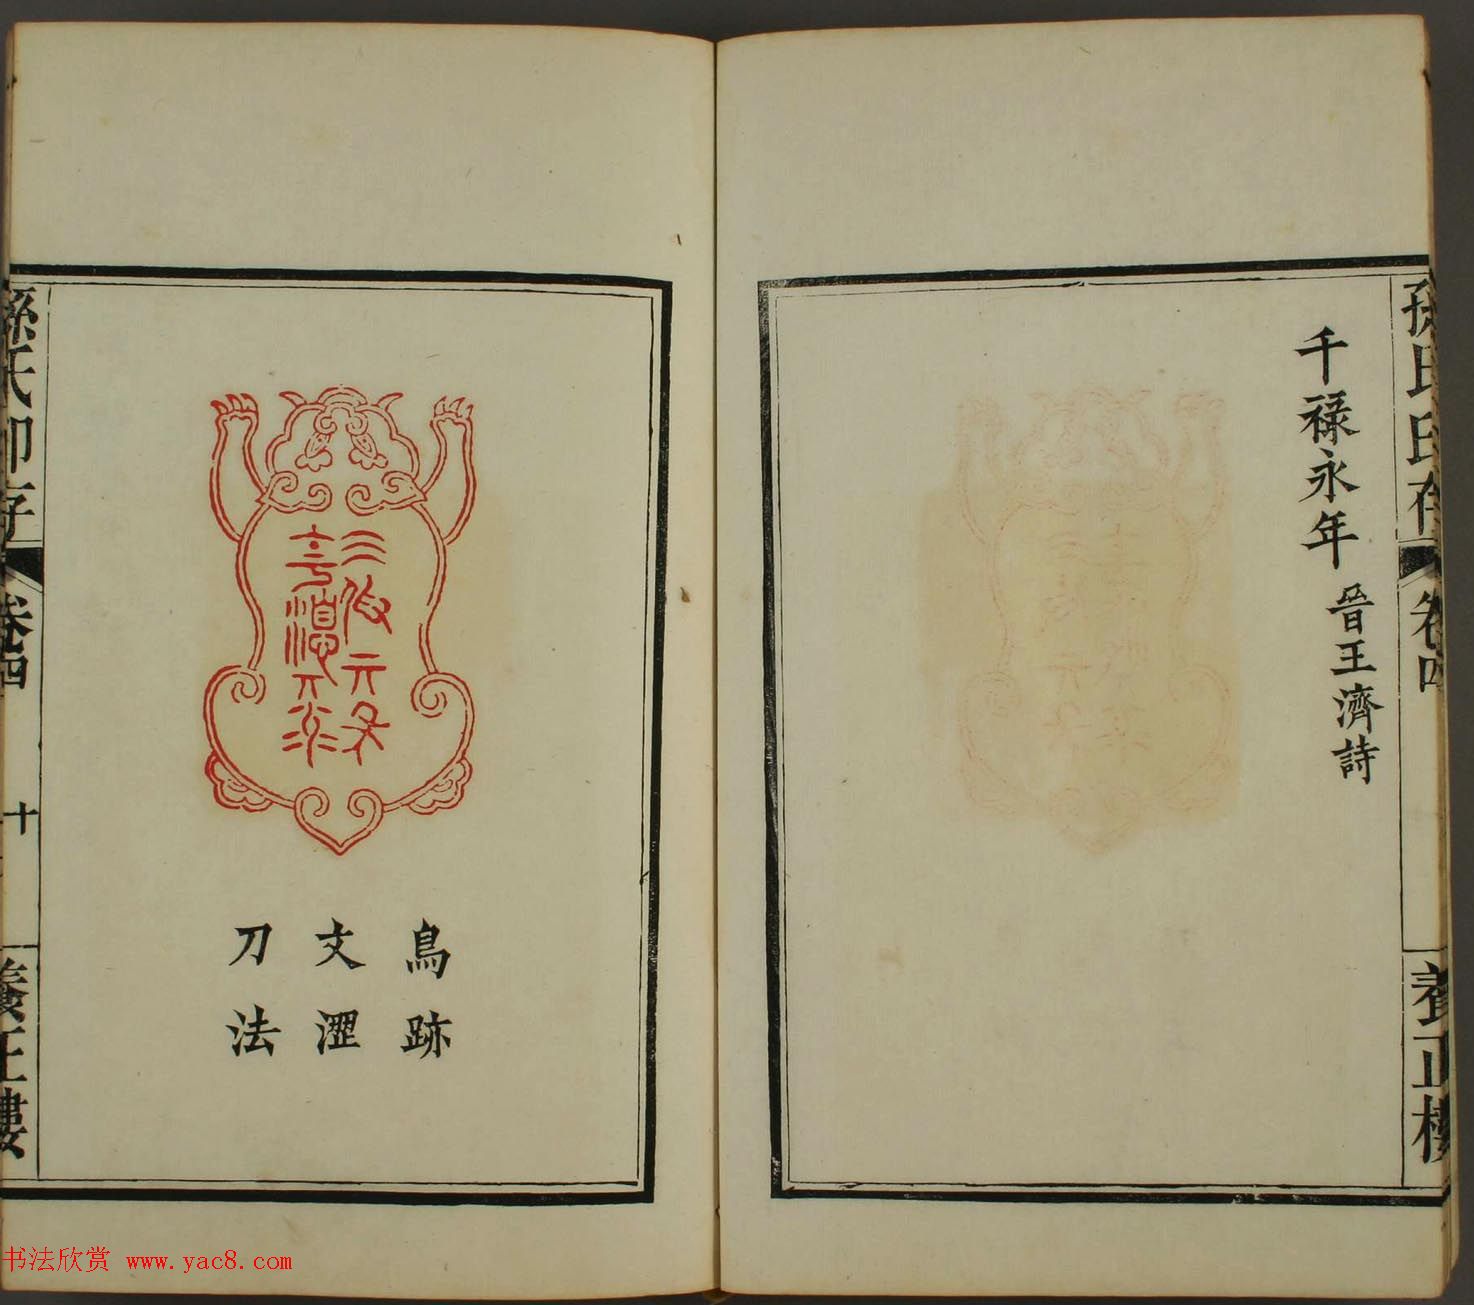 孫氏印存
卷四
養正樓
千禄永年
晉王濟詩
鳥跡
文澀
刀法
孫氏印存
卷四
十
養正樓
书法欣赏 www.yac8.com